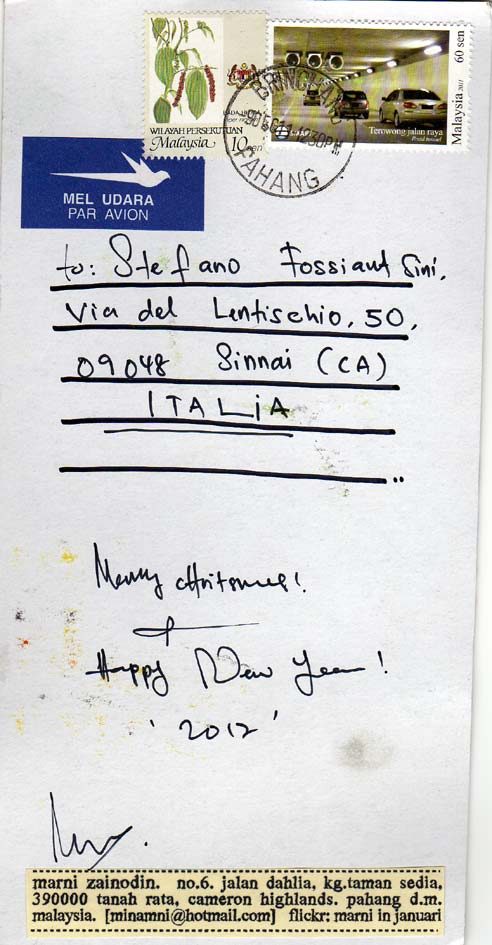 WILAYAH PERSEKUTUAN
Malaysia 10 sen
60 sen
Malaysia 2011
Terowong jalan raya
Road tunnel
BRINCHANG
1230PM
PAHANG
MEL UDARA
PAR AVION
to: Stefano Fossiant Sini,
Via del Lentischio, 50,
09048 Sinnai (CA)
ITALiA
Merry Christmas!
+
Happy New Year!
'2012'
marni zainodin. no.6. jalan dahlia, kg.taman sedia,
390000 tanah rata, cameron highlands. pahang d.m.
malaysia. [minamni@hotmail.com] flickr: marni in januari